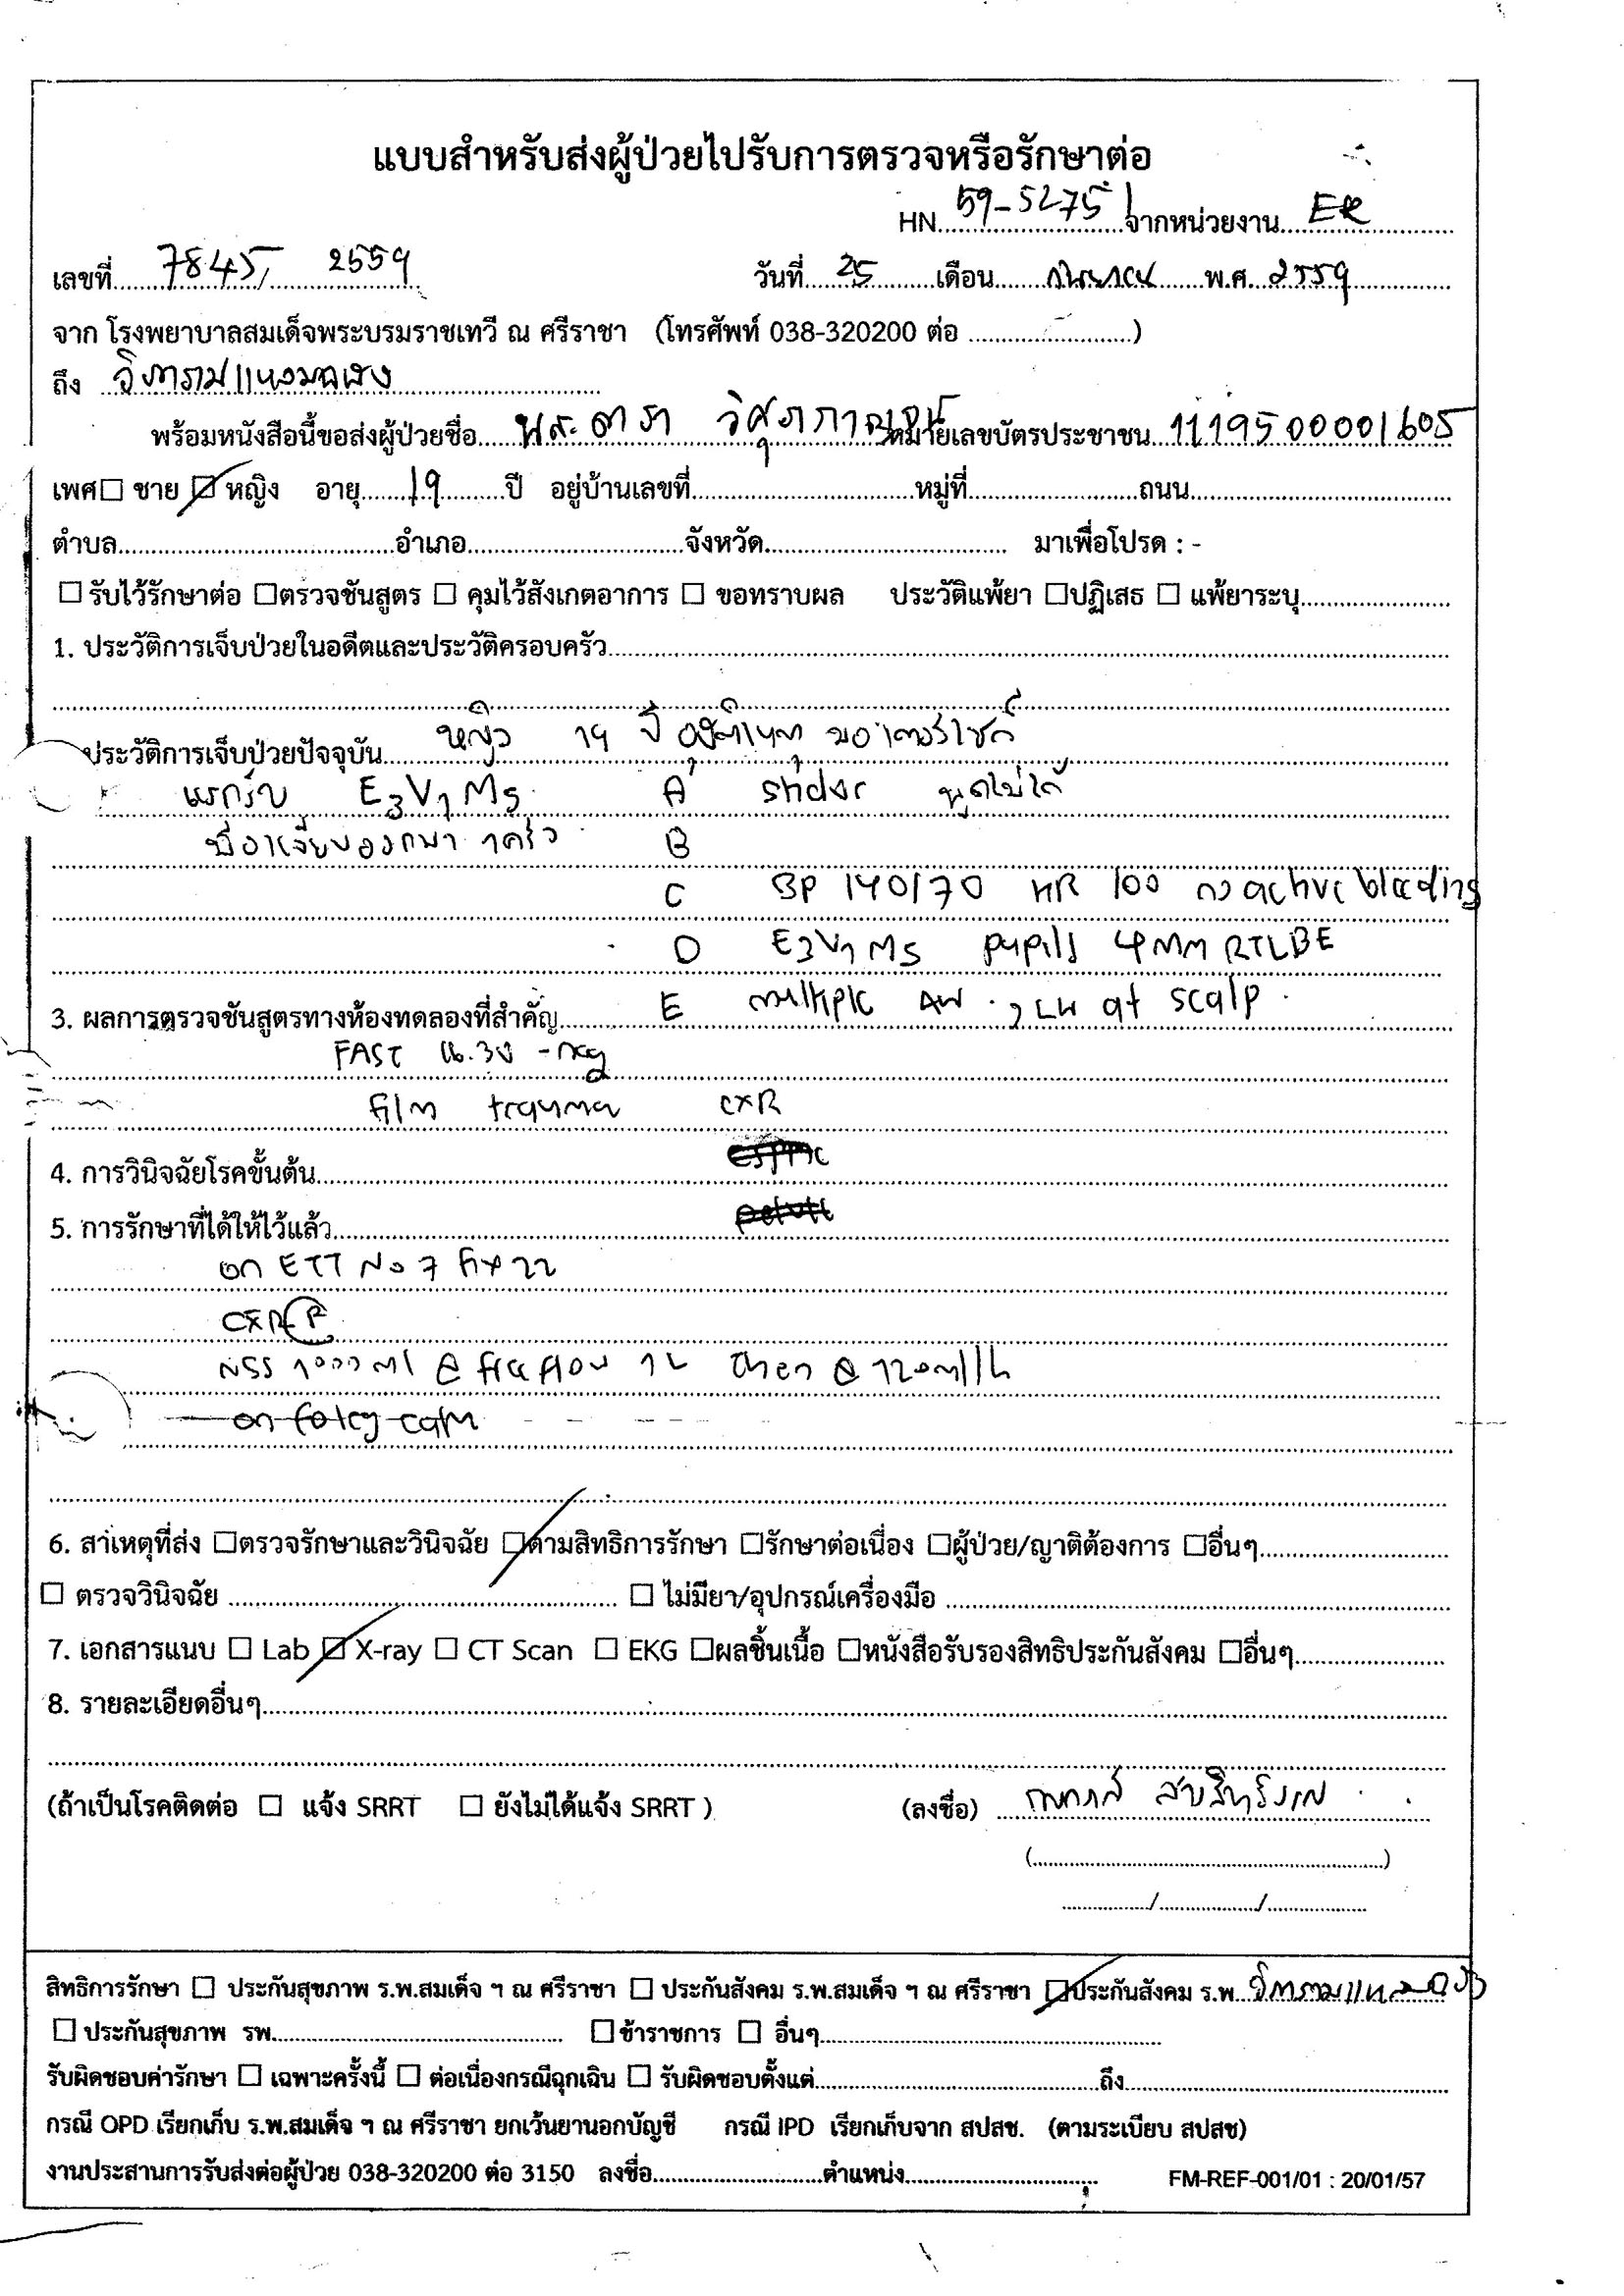 แบบสำหรับส่งผู้ป่วยไปรับการตรวจหรือรักษาต่อ
HN 59-5275 จากหน่วยงาน ER
เลขที่ 7845/ 2559 วันที่ 25 เดือน กันยายน พ.ศ. 2559
จาก โรงพยาบาลสมเด็จพระบรมราชเทวี ณ ศรีราชา (โทรศัพท์ 038-320200 ต่อ ............)
ถึง วิภารามแหลมฉบัง
พร้อมหนังสือนี้ขอส่งผู้ป่วยชื่อ นส. ดารา หมายเลขบัตรประชาชน 1119500001605
เพศ ☐ ชาย ☑ หญิง อายุ 19 ปี อยู่บ้านเลขที่............หมู่ที่............ถนน............
ตำบล............อำเภอ............จังหวัด............ มาเพื่อโปรด : -
☐ รับไว้รักษาต่อ ☐ตรวจชันสูตร ☐ คุมไว้สังเกตอาการ ☐ ขอทราบผล ประวัติแพ้ยา ☐ปฏิเสธ ☐ แพ้ยาระบุ............
1. ประวัติการเจ็บป่วยในอดีตและประวัติครอบครัว............
ประวัติการเจ็บป่วยปัจจุบัน หญิง 19 ปี อุบัติเหตุ มอเตอร์ไซค์
แรกรับ E3V1M5 A stridor พูดไม่ได้
B
C BP 140/70 HR 100 no active bleeding
D E3V1M5 pupils 4 mm RTLBE
3. ผลการตรวจชันสูตรทางห้องทดลองที่สำคัญ E multiple AW , LW at scalp
FAST 16.30 -neg
film trauma CXR
4. การวินิจฉัยโรคขั้นต้น............
5. การรักษาที่ได้ให้ไว้แล้ว............
on ETT No 7 fix 22
CXR P
NSS 1000 ml @ free flow 1L then @ 120 ml/h
on foley cath
6. สาเหตุที่ส่ง ☐ตรวจรักษาและวินิจฉัย ☑ตามสิทธิการรักษา ☐รักษาต่อเนื่อง ☐ผู้ป่วย/ญาติต้องการ ☐อื่นๆ............
☐ ตรวจวินิจฉัย ............ ☐ ไม่มียา/อุปกรณ์เครื่องมือ ............
7. เอกสารแนบ ☐ Lab ☑ X-ray ☐ CT Scan ☐ EKG ☐ผลชิ้นเนื้อ ☐หนังสือรับรองสิทธิประกันสังคม ☐อื่นๆ............
8. รายละเอียดอื่นๆ............
(ถ้าเป็นโรคติดต่อ ☐ แจ้ง SRRT ☐ ยังไม่ได้แจ้ง SRRT ) (ลงชื่อ)
(............)
............/............/............
สิทธิการรักษา ☐ ประกันสุขภาพ ร.พ.สมเด็จ ฯ ณ ศรีราชา ☐ ประกันสังคม ร.พ.สมเด็จ ฯ ณ ศรีราชา ☑ประกันสังคม ร.พ. วิภารามแหลมฉบัง
☐ ประกันสุขภาพ รพ............. ☐ข้าราชการ ☐ อื่นๆ............
รับผิดชอบค่ารักษา ☐ เฉพาะครั้งนี้ ☐ ต่อเนื่องกรณีฉุกเฉิน ☐ รับผิดชอบตั้งแต่............ถึง............
กรณี OPD เรียกเก็บ ร.พ.สมเด็จ ฯ ณ ศรีราชา ยกเว้นยานอกบัญชี กรณี IPD เรียกเก็บจาก สปสช. (ตามระเบียบ สปสช)
งานประสานการรับส่งต่อผู้ป่วย 038-320200 ต่อ 3150 ลงชื่อ............ตำแหน่ง............ FM-REF-001/01 : 20/01/57